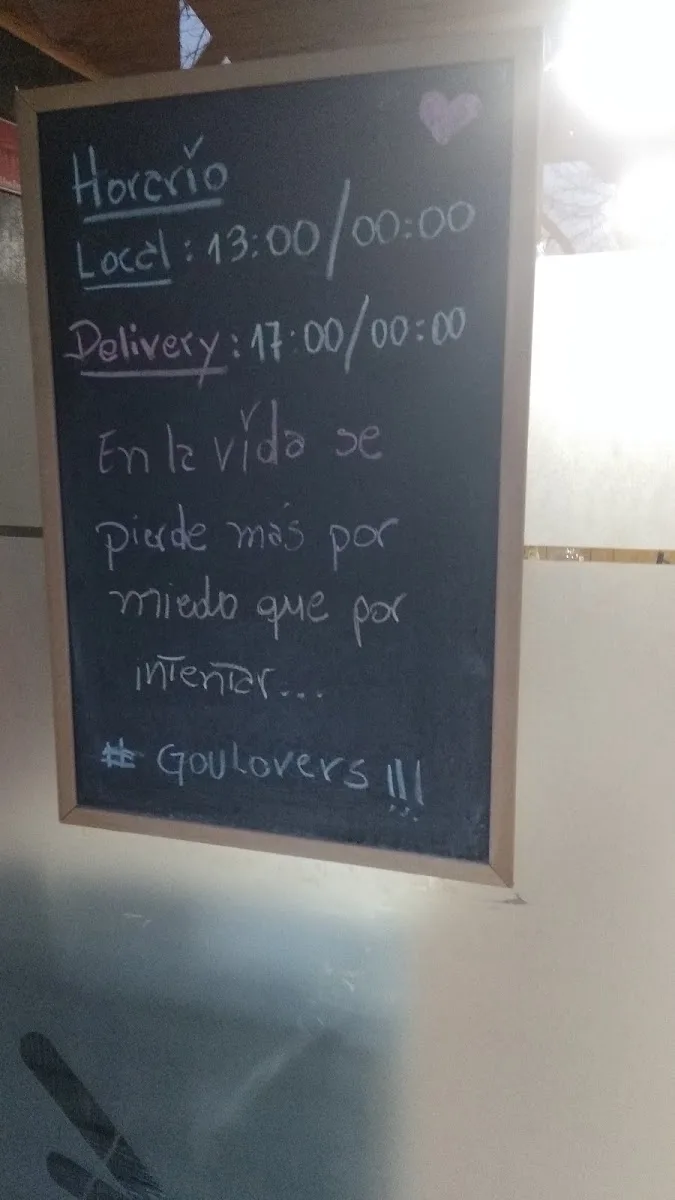 Horario
Local: 13:00/00:00
Delivery: 17:00/00:00
En la vida se
pierde más por
miedo que por
intentar...
# GOULovers!!!